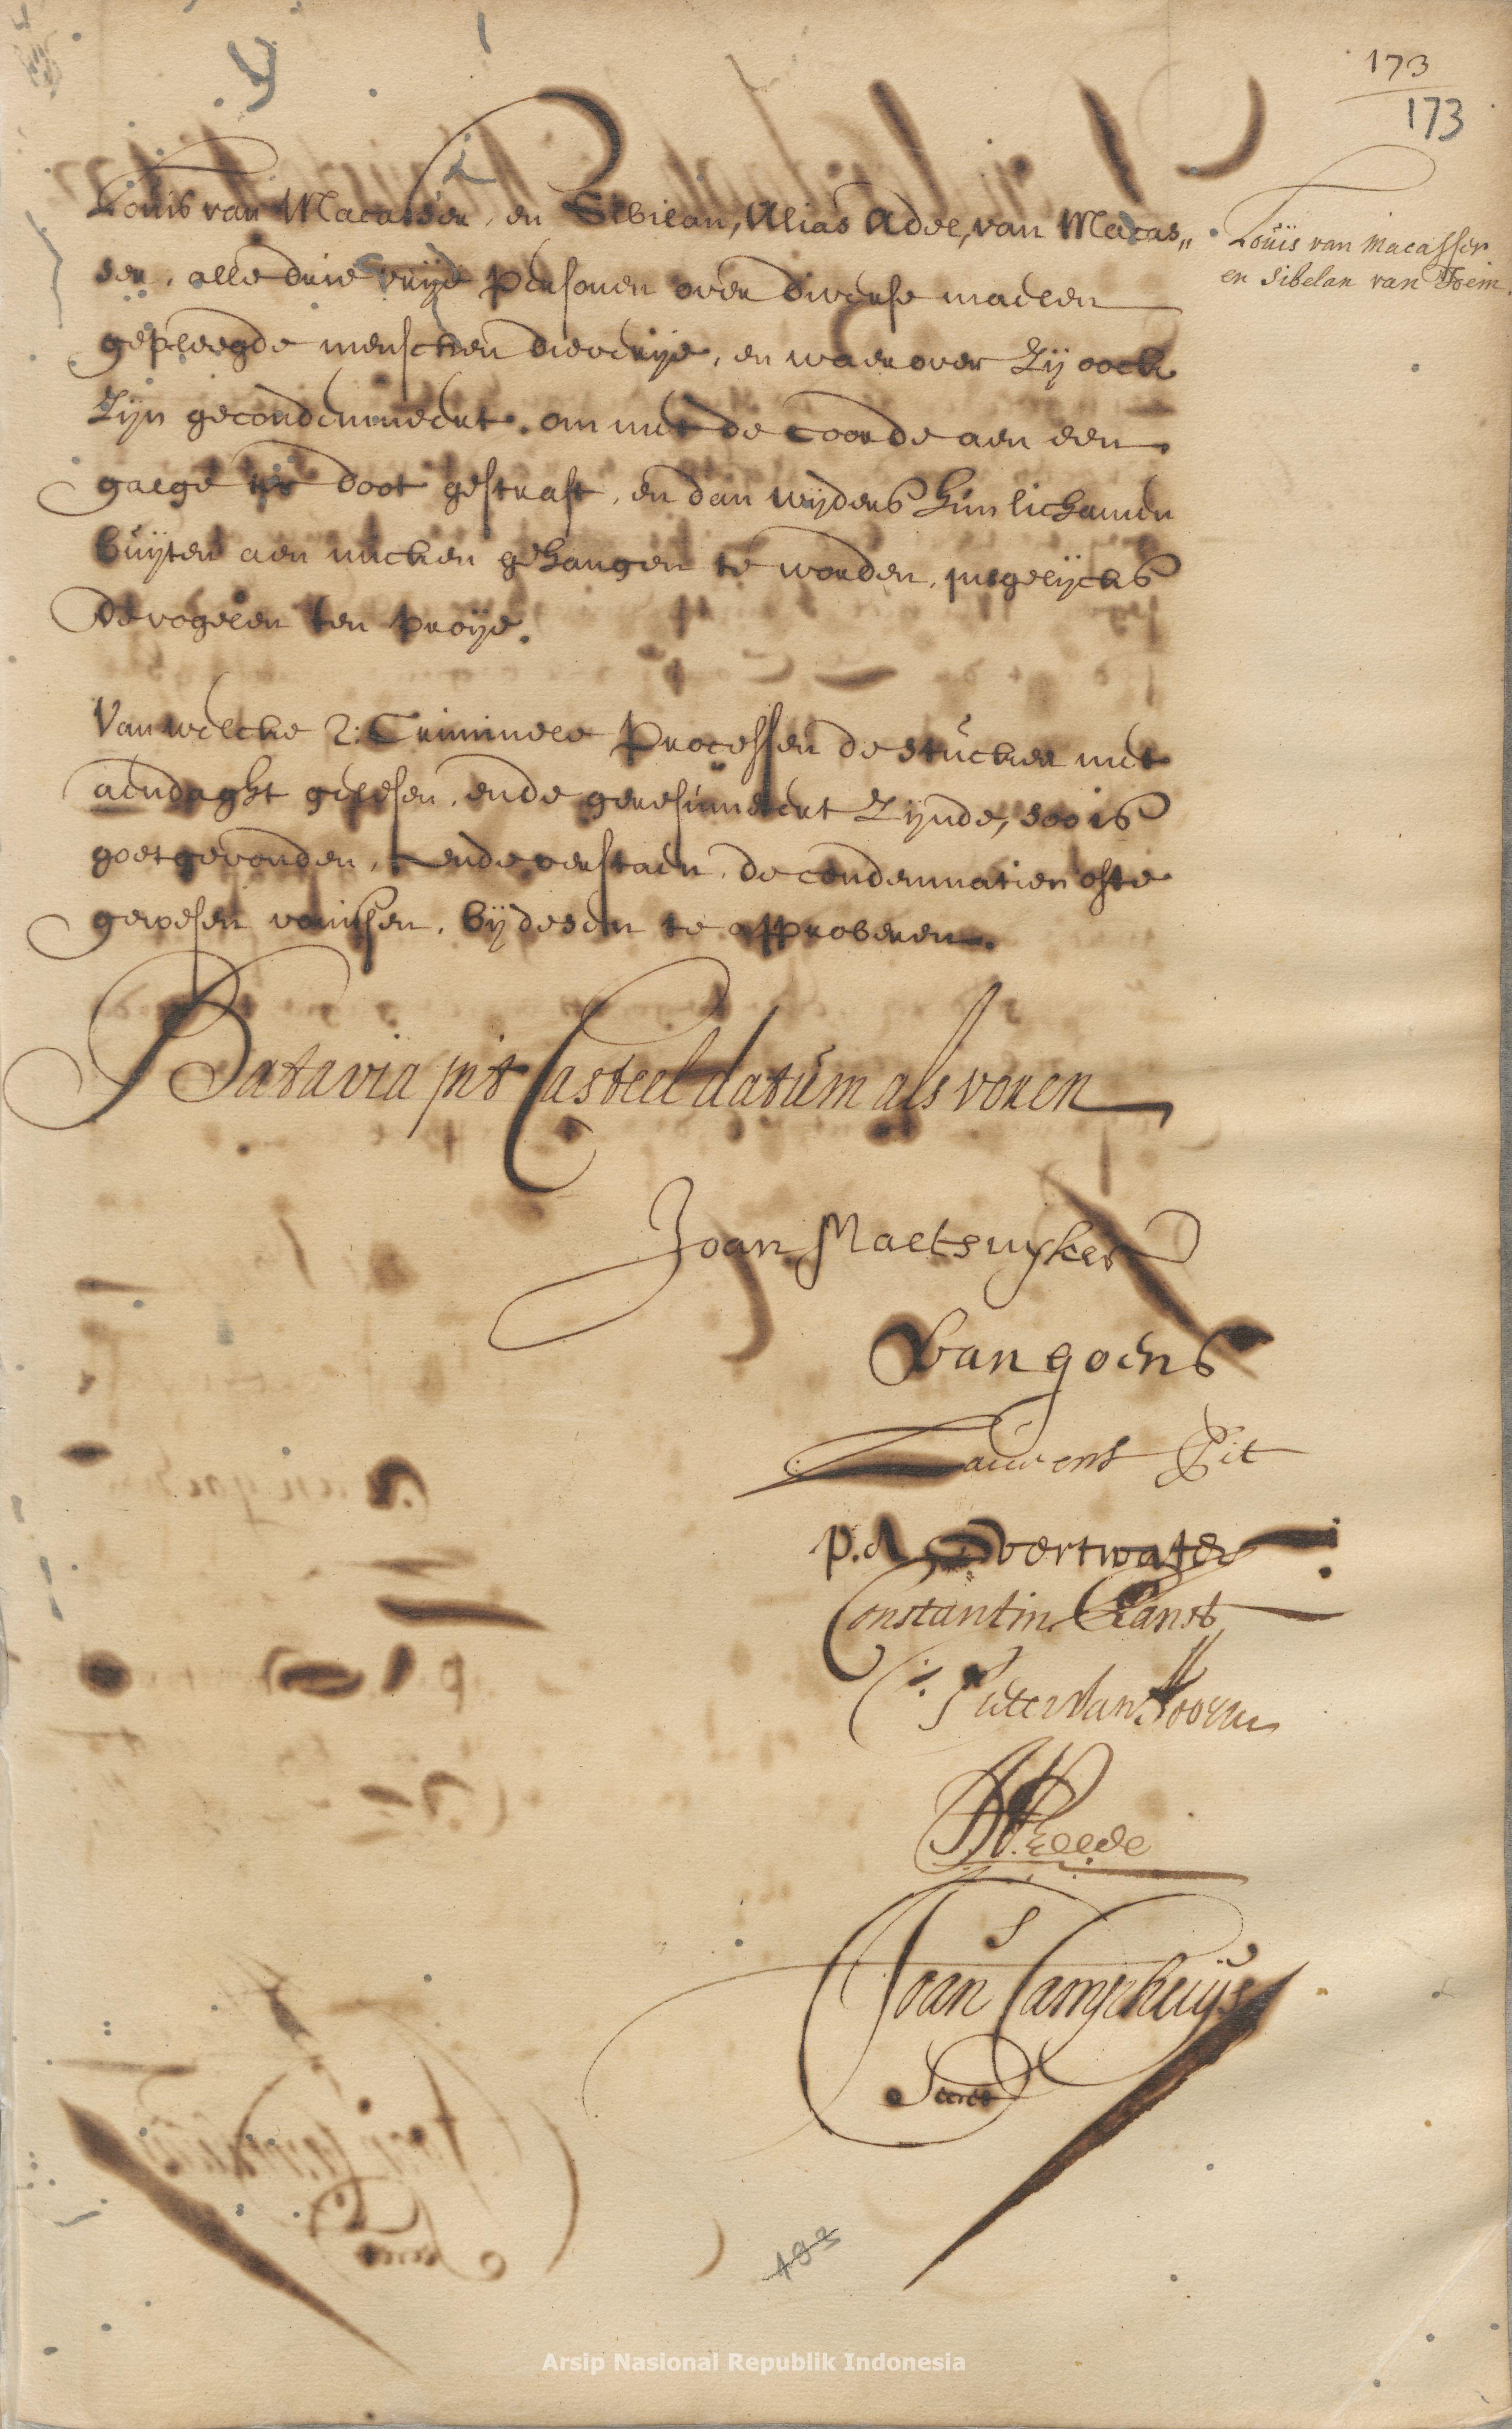 173
173
Louis van Macasser, en Sibilan, Alias Adoe, van Macas„
ser, alle drie vrije persoonen over diverse maelen
gepleegde menschen dieverije, en waerover zij oock
zijn gecondemneert, om met de coorde aen een
galge ter doot gestraft, en dan wijders hun lichamen
buijten aen micken gehangen te worden, insgelijcks
de vogelen ten proije.
Louis van Macasser
en Sibelan van Idem
Van welcke 2: Crimineele Processen de stucken met
aendaght gelesen, ende geresumeert zijnde, soo is
goetgevonden, ende verstaen, de condemnatien ofte
gewesen vonissen, bij desen te approberen.
Batavia int Casteel datum als voren
Joan Maetsuyker
Van Goens
Laurens Pit
p. A Overtwater
Constantin Ranst
Pieter Van Hoorn
Reede
Joan Camphuijs
Secrets
103
Arsip Nasional Republik Indonesia